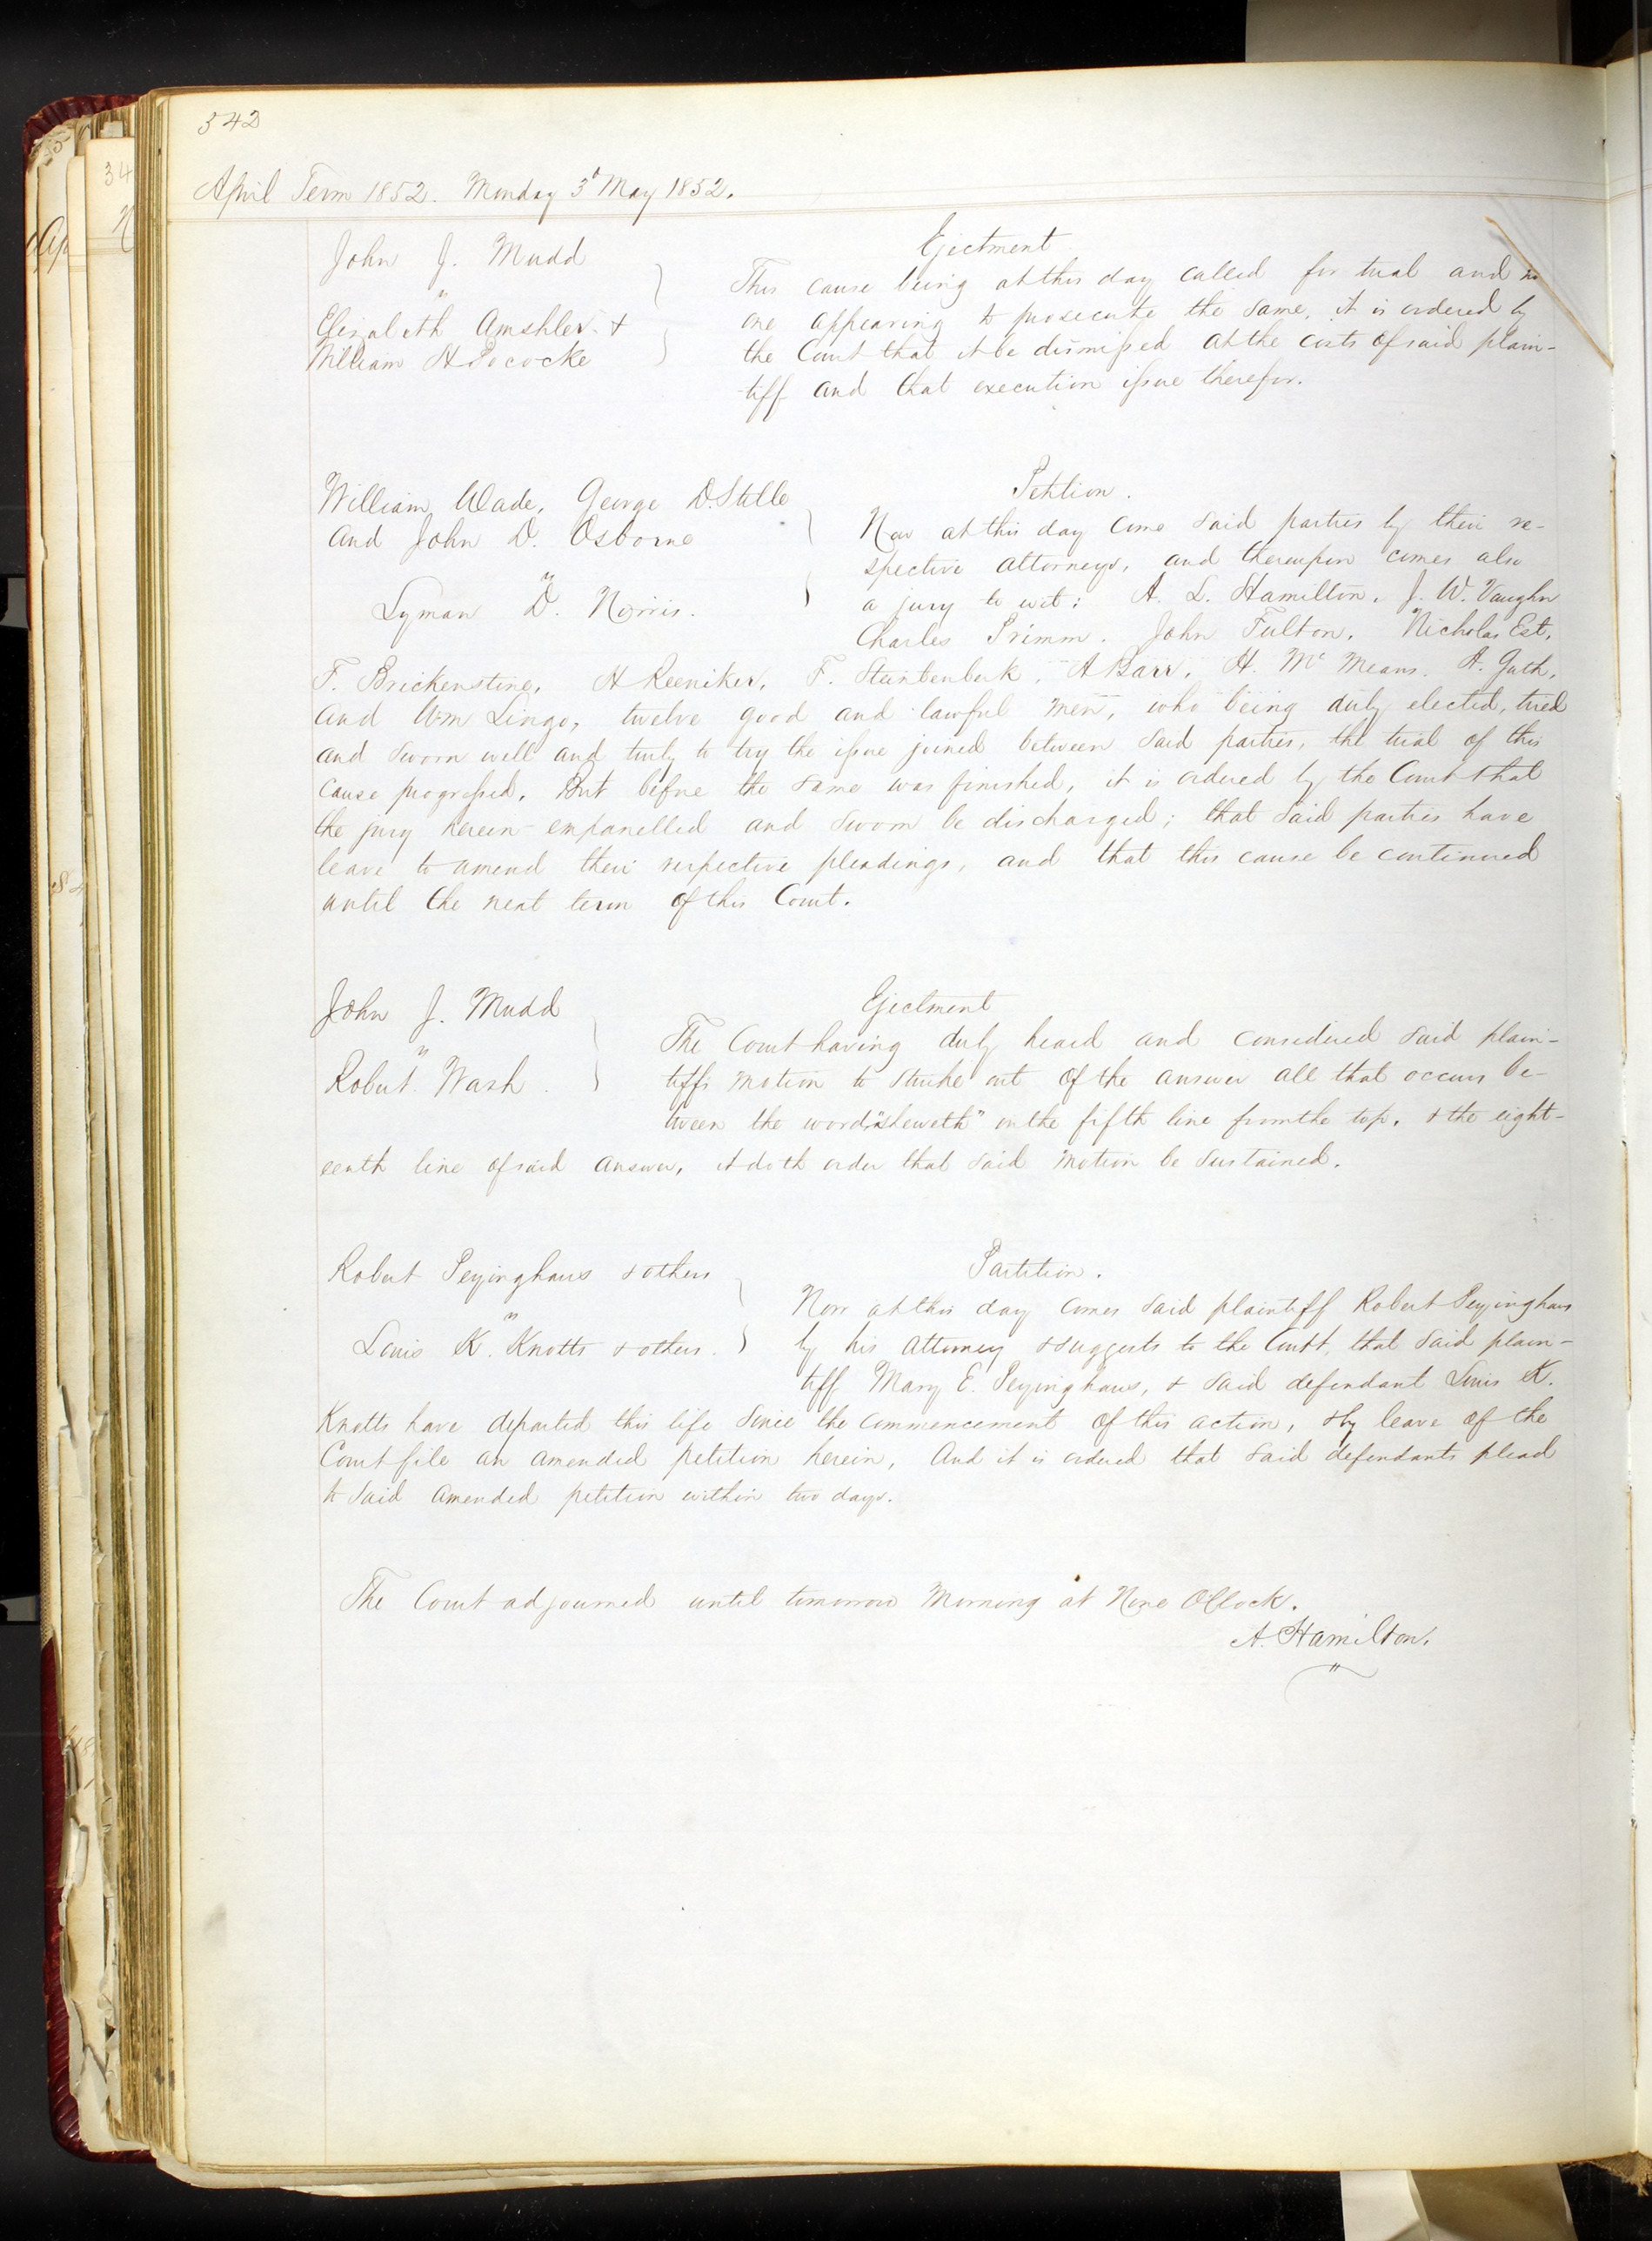 342
April Term 1852. Monday 3d May 1852.
John J. Mudd
vs
Elizabeth Amshler &
William H Pococke
Ejectment
This cause being at this day called for trial and no
one appearing to prosecute the same, it is ordered by
the Court that it be dismissed at the costs of said plain-
tiff and that execution issue therefor.
William Wade, George D. Stille
and John D. Osborne
vs
Lyman D. Norris.
Petition.
Now at this day come said parties by their re-
spective attorneys, and thereupon comes also
a jury to wit: A. L. Hamilton. J. W. Vaughn
Charles Primm. John Fulton. Nicholas Est.
F. Brickenstine, H Reeniker, F. Steinbenbeck, A Barr, H. McMeans. A. Guth.
and Wm Lingo, twelve good and lawful men, who being duly elected, tried
and sworn well and truly to try the issue joined between said parties, the trial of this
cause progressed. But before the same was finished, it is ordered by the Court that
the jury herein empanelled and sworn be discharged; that said parties have
leave to amend their respective pleadings, and that this cause be continued
until the next term of this Court.
John J. Mudd
vs
Robert Wash.
Ejectment
The Court having duly heard and considered said plain-
tiffs motion to strike out of the answer all that occurs be-
tween the word, "sheweth" on the fifth line from the top, & the eight-
eenth line of said answer, it doth order that said motion be sustained.
Robert Peyinghaus & others
vs
Louis K. Knotts & others.
Partition.
Now at this day comes said plaintiff Robert Peyinghaus
by his attorney & suggests to the Court, that said plain-
tiff Mary E. Peyinghaus, & said defendant Louis K.
Knotts have departed this life since the commencement of this action, & by leave of the
Court file an amended petition herein, And it is ordered that said defendants plead
to said amended petition within two days.
The Court adjourned until tomorrow Morning at Nine O'Clock.
A. Hamilton.